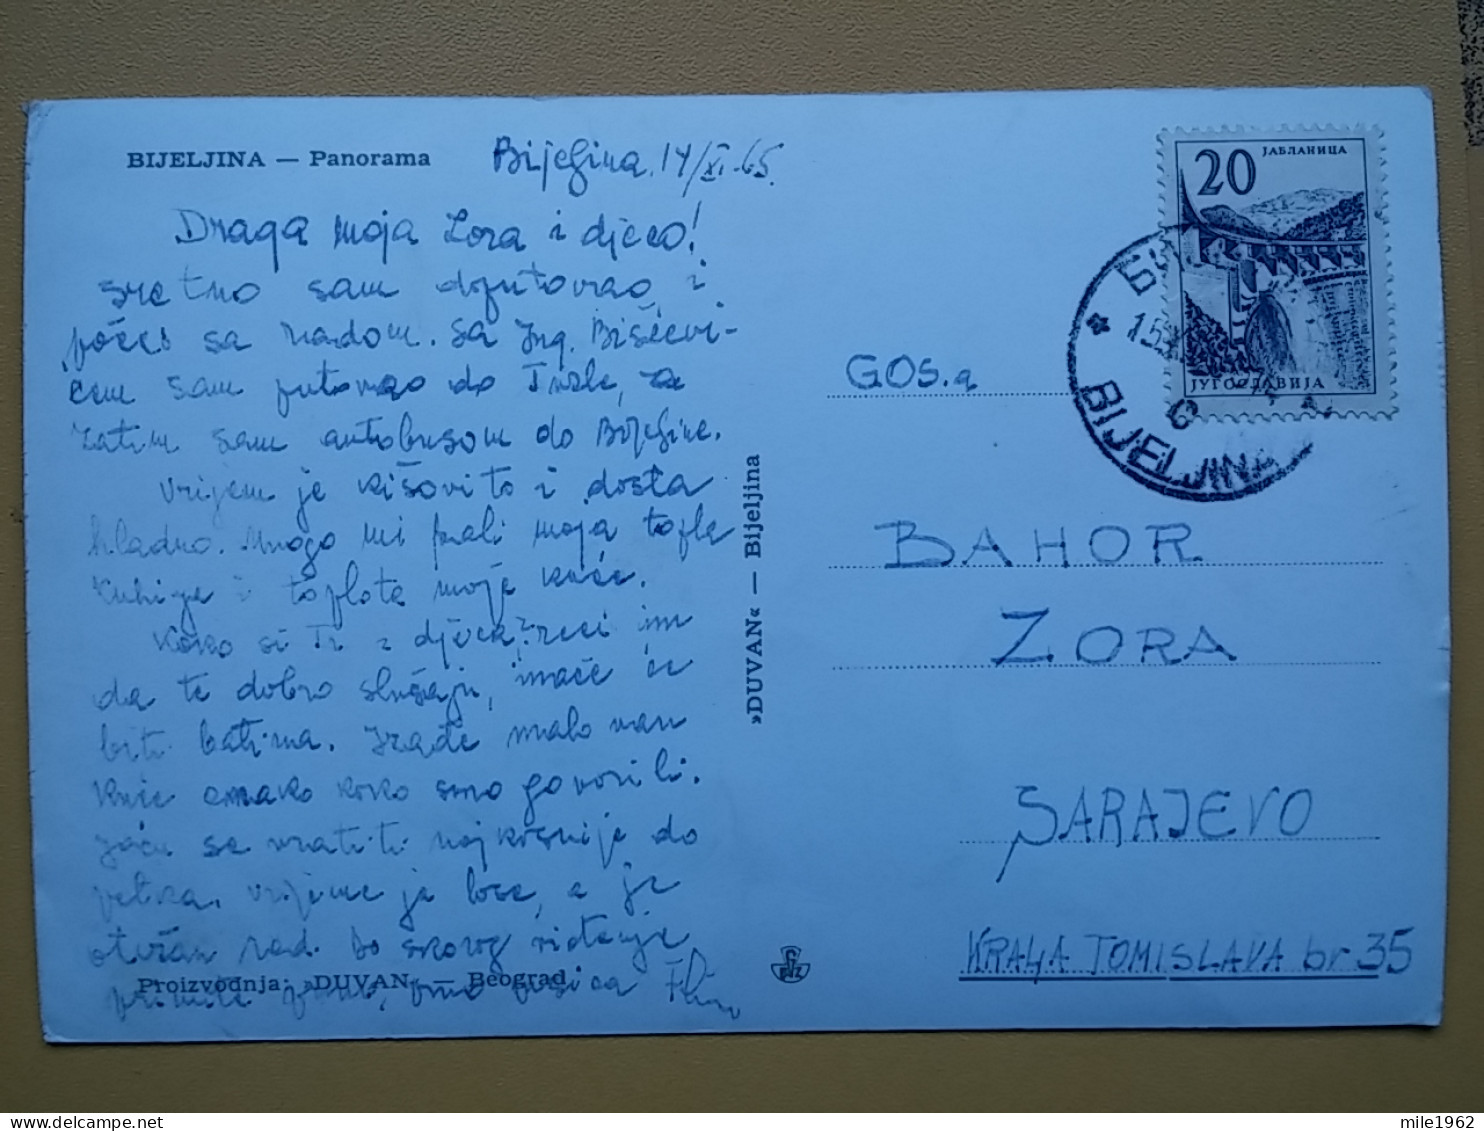 BIJELJINA — Panorama
Bijeljina, 14/XI-65.
Draga moja Zora i djeco!
Sretno sam doputovao i
počeo sa radom. Sa Ing. Bišćevi-
ćem sam putovao do Tuzle, a
zatim sam autobusom do Bijeljine.
Vrijem je kišovito i dosta
hladno. Mnogo mi fali moja topla
kuhinja i toplota moje kuće.
Kako si Ti i djeca? reci im
da te dobro slušaju, inače će
biti batina. Izađe malo van
kuće onako kako smo govorili.
Ja ću se vratiti najkasnije do
petka. Vrijeme je loše, a je
otežan rad. Do skorog viđenja
primite puno, puno pusica
Proizvodnja: »DUVAN« — Beograd
»DUVAN« — Bijeljina
20
ЈАБЛАНИЦА
ЈУГОСЛАВИЈА
BIJELJINA
GOS.a
BAHOR
ZORA
SARAJEVO
KRALJA TOMISLAVA br 35
mile1962